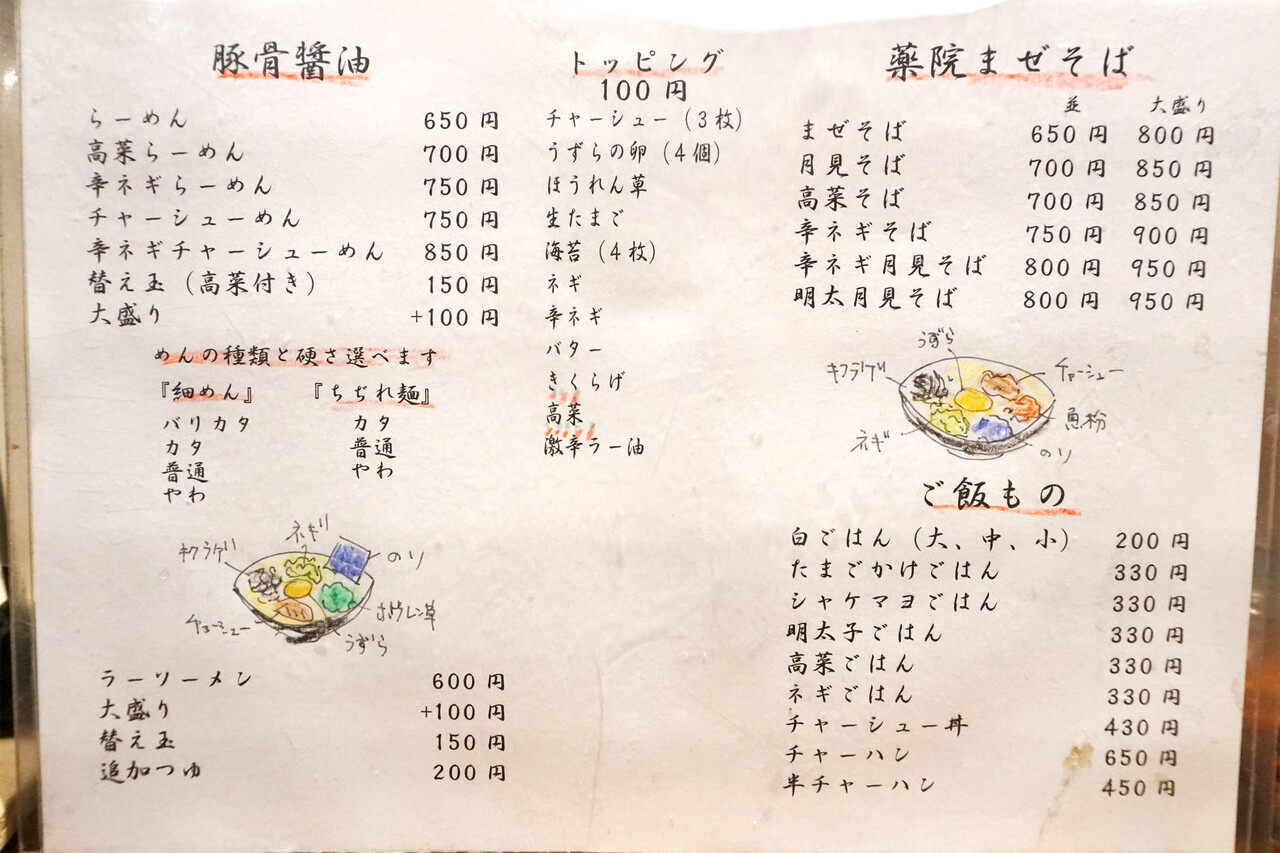 豚骨醤油
らーめん 650円
高菜らーめん 700円
辛ネギらーめん 750円
チャーシューめん 750円
辛ネギチャーシューめん 850円
替え玉（高菜付き） 150円
大盛り +100円
めんの種類と硬さ選べます
『細めん』 『ちぢれ麺』
バリカタ カタ
カタ 普通
普通 やわ
やわ
ネギ
キクラゲ
のり
ホウレン草
チャーシュー
うずら
ラーソーメン 600円
大盛り +100円
替え玉 150円
追加つゆ 200円
トッピング
100円
チャーシュー（3枚）
うずらの卵（4個）
ほうれん草
生たまご
海苔（4枚）
ネギ
辛ネギ
バター
きくらげ
高菜
激辛ラー油
薬院まぜそば
並 大盛り
まぜそば 650円 800円
月見そば 700円 850円
高菜そば 700円 850円
辛ネギそば 750円 900円
辛ネギ月見そば 800円 950円
明太月見そば 800円 950円
うずら
キクラゲ
チャーシュー
魚粉
ネギ
のり
ご飯もの
白ごはん（大、中、小） 200円
たまごかけごはん 330円
シャケマヨごはん 330円
明太子ごはん 330円
高菜ごはん 330円
ネギごはん 330円
チャーシュー丼 430円
チャーハン 650円
半チャーハン 450円